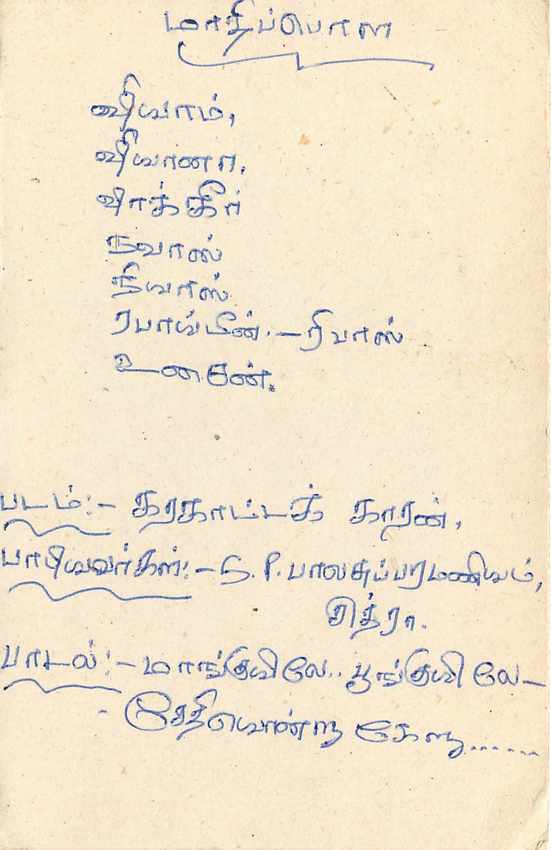 மாதிப்பொள
ஷியாம்,
ஷியானா,
ஷாக்கீர்
நவாஸ்
நியாஸ்
ரபாய்தீன். - ரிவாஸ்
படம்:- கரகாட்டக் காரன்,
பாடியவர்கள்:- S. P. பாலசுப்பரமணியம்,
சித்ரா.
பாடல்:- மாங்குயிலே.. பூங்குயிலே -
- சேதியொண்ணு கேளு......